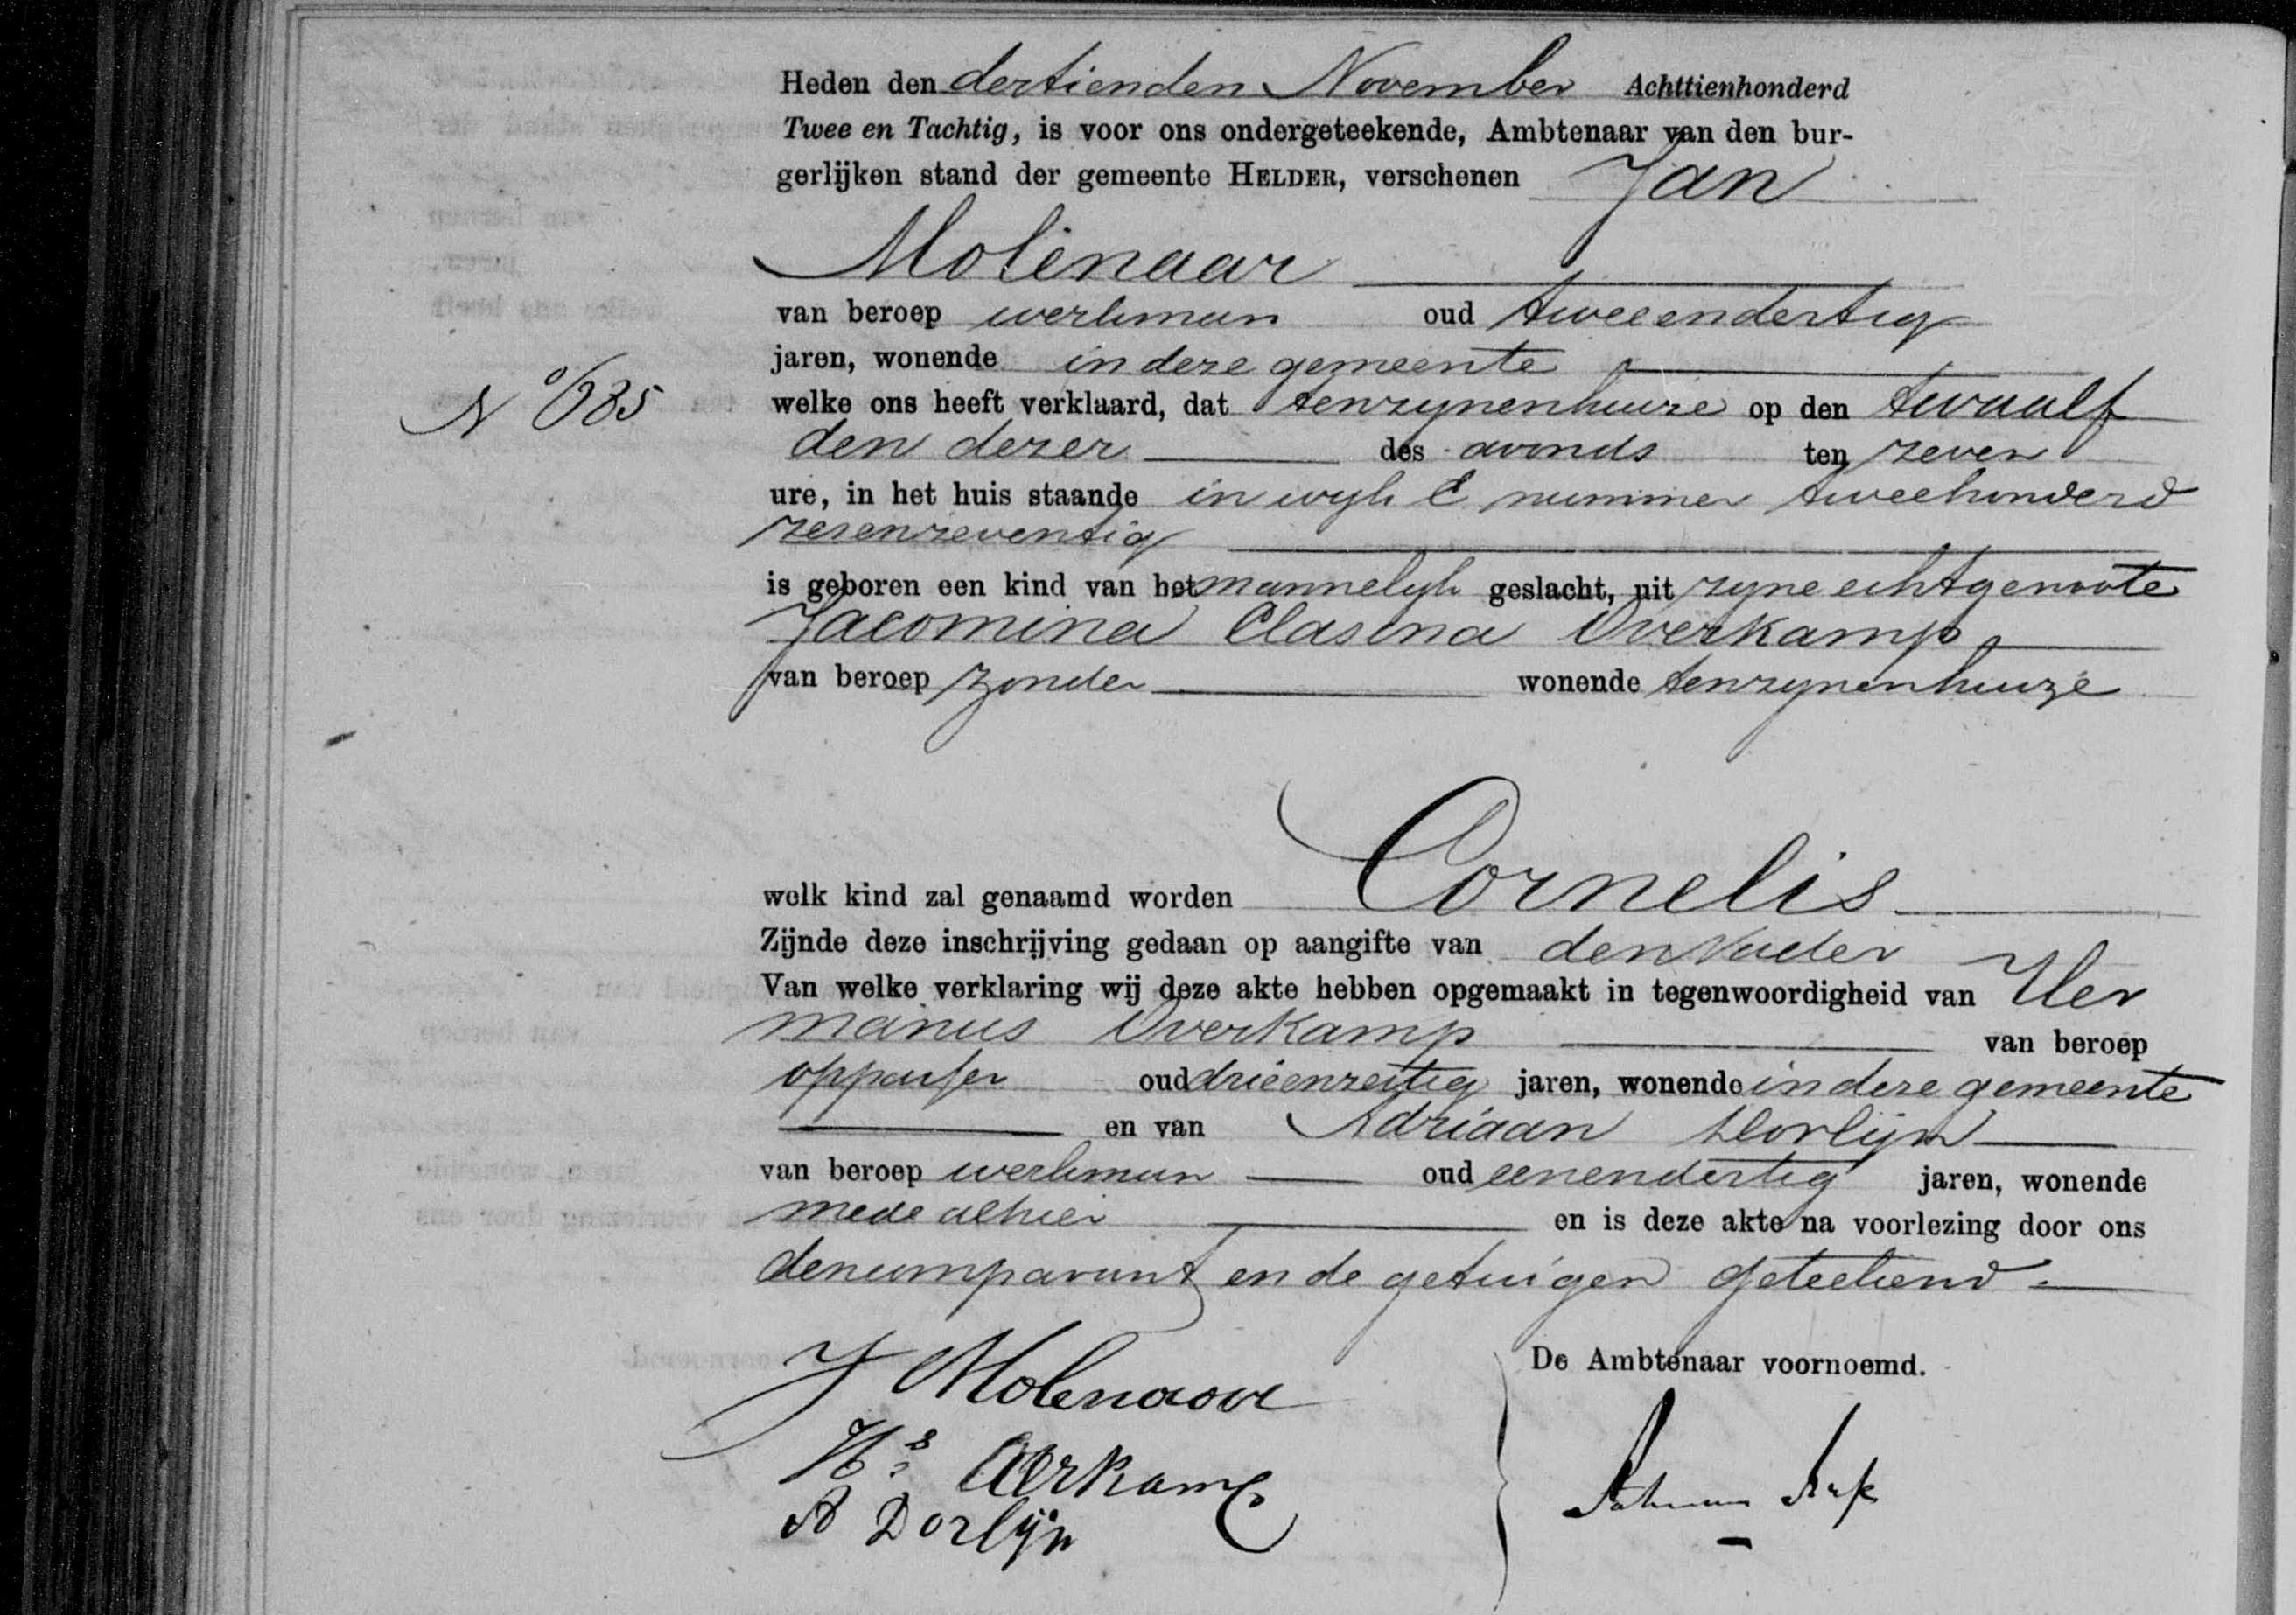 Heden den dertienden November Achttienhonderd
Twee en Tachtig, is voor ons ondergeteekende, Ambtenaar van den bur-
gerlijken stand der gemeente HELDER, verschenen Jan
Molenaar
van beroep werkman oud tweeendertig
jaren, wonende in deze gemeente
No 735
welke ons heeft verklaard, dat tenzynenhuize op den twaalf
den dezer des avonds ten zeven
ure, in het huis staande in wyk E nummer tweehonderd
zesenzeventig
is geboren een kind van het mannelyk geslacht, uit zyne echtgenoote
Jacomina Clasina Overkamp
van beroep zonder wonende tenzynenhuize
welk kind zal genaamd worden Cornelis
Zijnde deze inschrijving gedaan op aangifte van den Vader
Van welke verklaring wij deze akte hebben opgemaakt in tegenwoordigheid van Her
manus Overkamp van beroep
oppasser oud drieenzestig jaren, wonende in deze gemeente
en van Adriaan Dorlijn
van beroep werkman oud eenendertig jaren, wonende
mede alhier en is deze akte na voorlezing door ons
den comparant en de getuigen geteekend.
J Molenaar
De Ambtenaar voornoemd.
Hs Overkamp
A Dorlijn